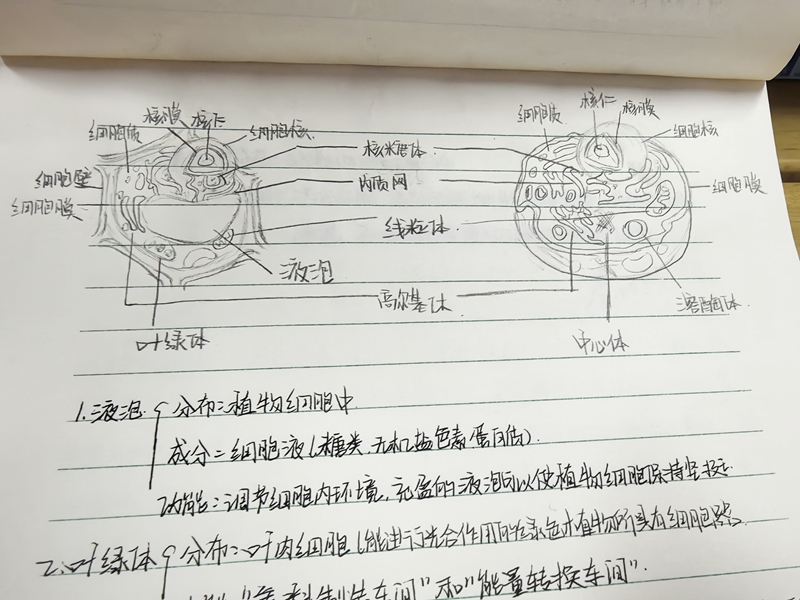 核膜 核仁
细胞质 细胞核
细胞壁
细胞膜
核糖体
内质网
线粒体
液泡
高尔基体
叶绿体
核仁
细胞质 核膜
细胞核
细胞膜
溶酶体
中心体
1.液泡 分布:植物细胞中
成分:细胞液(糖类,无机盐色素蛋白质).
功能:调节细胞内环境,充盈的液泡可以使植物细胞保持坚挺.
2.叶绿体 分布:叶肉细胞(能进行光合作用的绿色植物所具有细胞器)
"养料制造车间"和"能量转换车间".